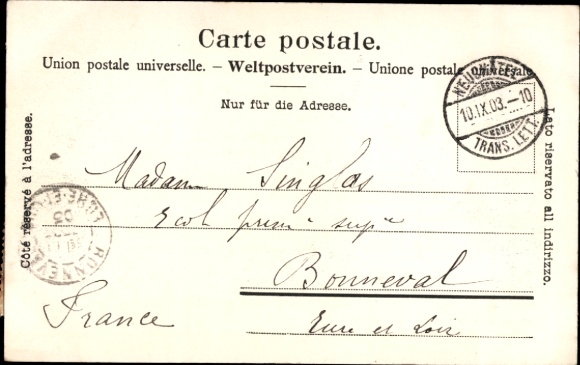 Carte postale.
Union postale universelle. – Weltpostverein. – Unione postale universale
Nur für die Adresse.
NEUCHATEL
10.IX.03.–10
TRANS. LETT.
Côté réservé à l'adresse.
Lato riservato all indirizzo.
Madame Singlas
Ecol prim'^e sup'^e
Bonneval
France
Eure et Loir
BONNEVAL
EURE-ET-
03